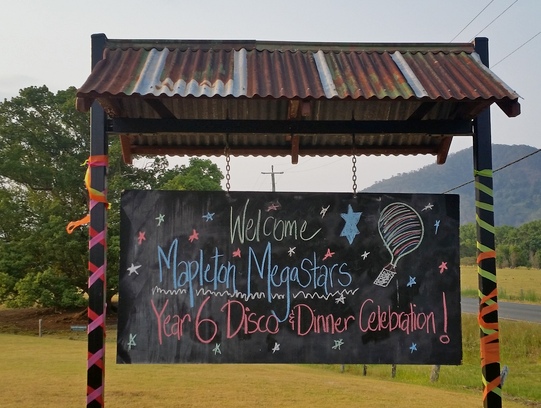 Welcome
Mapleton Megastars
Year 6 Disco & Dinner Celebration!